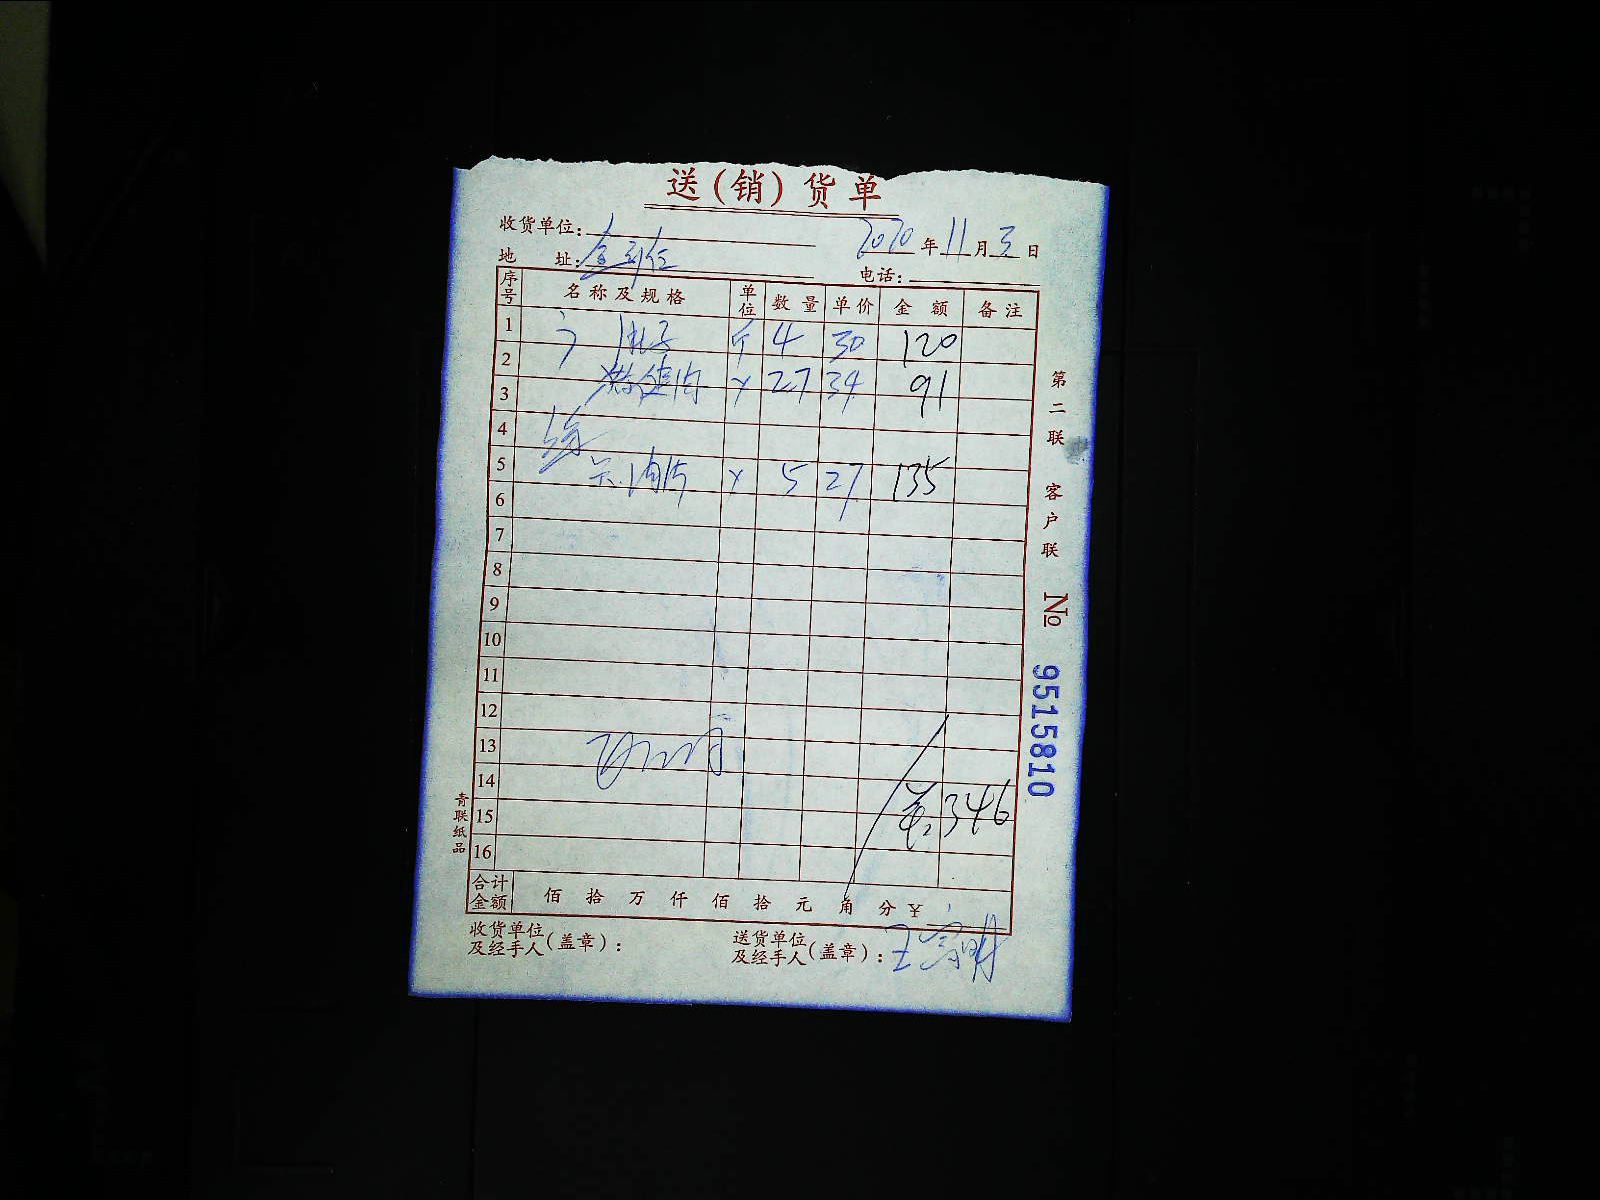 送(销)货单
收货单位: 2020年11月3日
地 址: 电话:
序号 名称及规格 单位 数量 单价 金额 备注
1 4 30 120
2 27 34 91
3
4
5 肉片 5 27 135
6
7
8
9
10
11
12
13
14
15 346
16
合计金额 佰 拾 万 仟 佰 拾 元 角 分 ¥
收货单位及经手人(盖章): 送货单位及经手人(盖章): 王
第二联 客户联 № 9515810
青联纸品